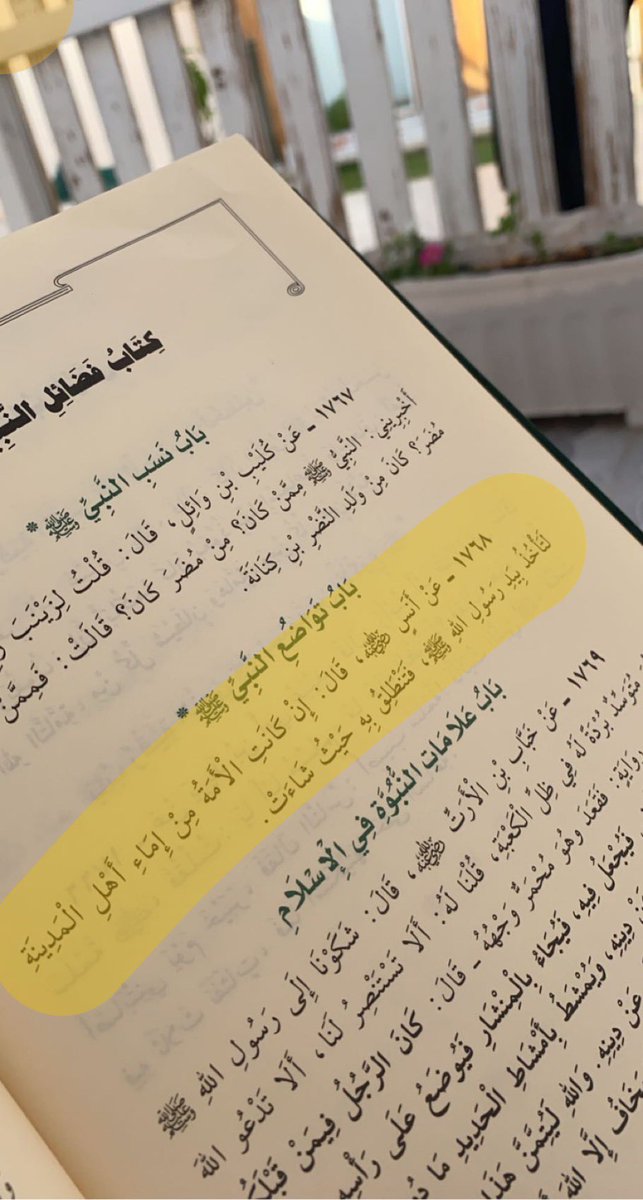 كِتَابُ فَضَائِلِ
بَابُ نَسَبِ النَّبِيِّ ﷺ *
١٧٦٧ - عَنْ كُلَيْبِ بْنِ وَائِلٍ، قَالَ: قُلْتُ لِزَيْنَبَ
أَخْبِرِينِي: النَّبِيُّ ﷺ مِمَّنْ كَانَ؟ مِنْ مُضَرَ كَانَ؟ قَالَتْ: فَمِمَّنْ
مُضَرَ؟ كَانَ مِنْ وَلَدِ النَّضْرِ بْنِ كِنَانَةَ.
بَابُ تَوَاضُعِ النَّبِيِّ ﷺ *
١٧٦٨ - عَنْ أَنَسٍ رضي الله عنه، قَالَ: إِنْ كَانَتِ الْأَمَةُ مِنْ إِمَاءِ أَهْلِ الْمَدِينَةِ
لَتَأْخُذُ بِيَدِ رَسُولِ اللهِ ﷺ، فَتَنْطَلِقُ بِهِ حَيْثُ شَاءَتْ.
بَابُ عَلَامَاتِ النُّبُوَّةِ فِي الْإِسْلَامِ
١٧٦٩ - عَنْ خَبَّابِ بْنِ الْأَرَتِّ رضي الله عنه، قَالَ: شَكَوْنَا إِلَى رَسُولِ اللهِ ﷺ
مُتَوَسِّدٌ بُرْدَةً لَهُ فِي ظِلِّ الْكَعْبَةِ، قُلْنَا لَهُ: أَلَا تَسْتَنْصِرُ لَنَا، أَلَا تَدْعُو اللهَ
فَقَعَدَ وَهُوَ مُحْمَرٌّ وَجْهُهُ - قَالَ: كَانَ الرَّجُلُ فِيمَنْ
فَيُجْعَلُ فِيهِ، فَيُجَاءُ بِالْمِنْشَارِ فَيُوضَعُ عَلَى رَأْسِهِ
دِينِهِ، وَيُمْشَطُ بِأَمْشَاطِ الْحَدِيدِ مَا
عَنْ دِينِهِ. وَاللهِ لَيُتِمَّنَّ هَذَا
إِلَّا اللهَ